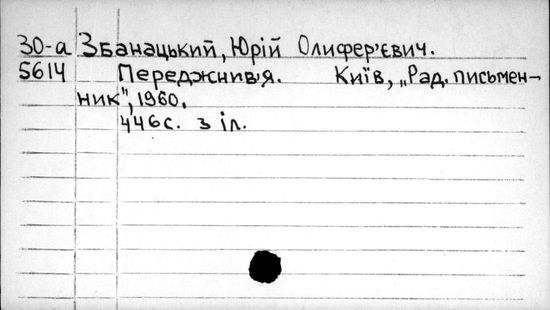 30-а Збанацький, Юрій Олифер'євич.
5614 Переджнив'я. Київ, „Рад. письмен-
ник", 1960.
446с. з іл.